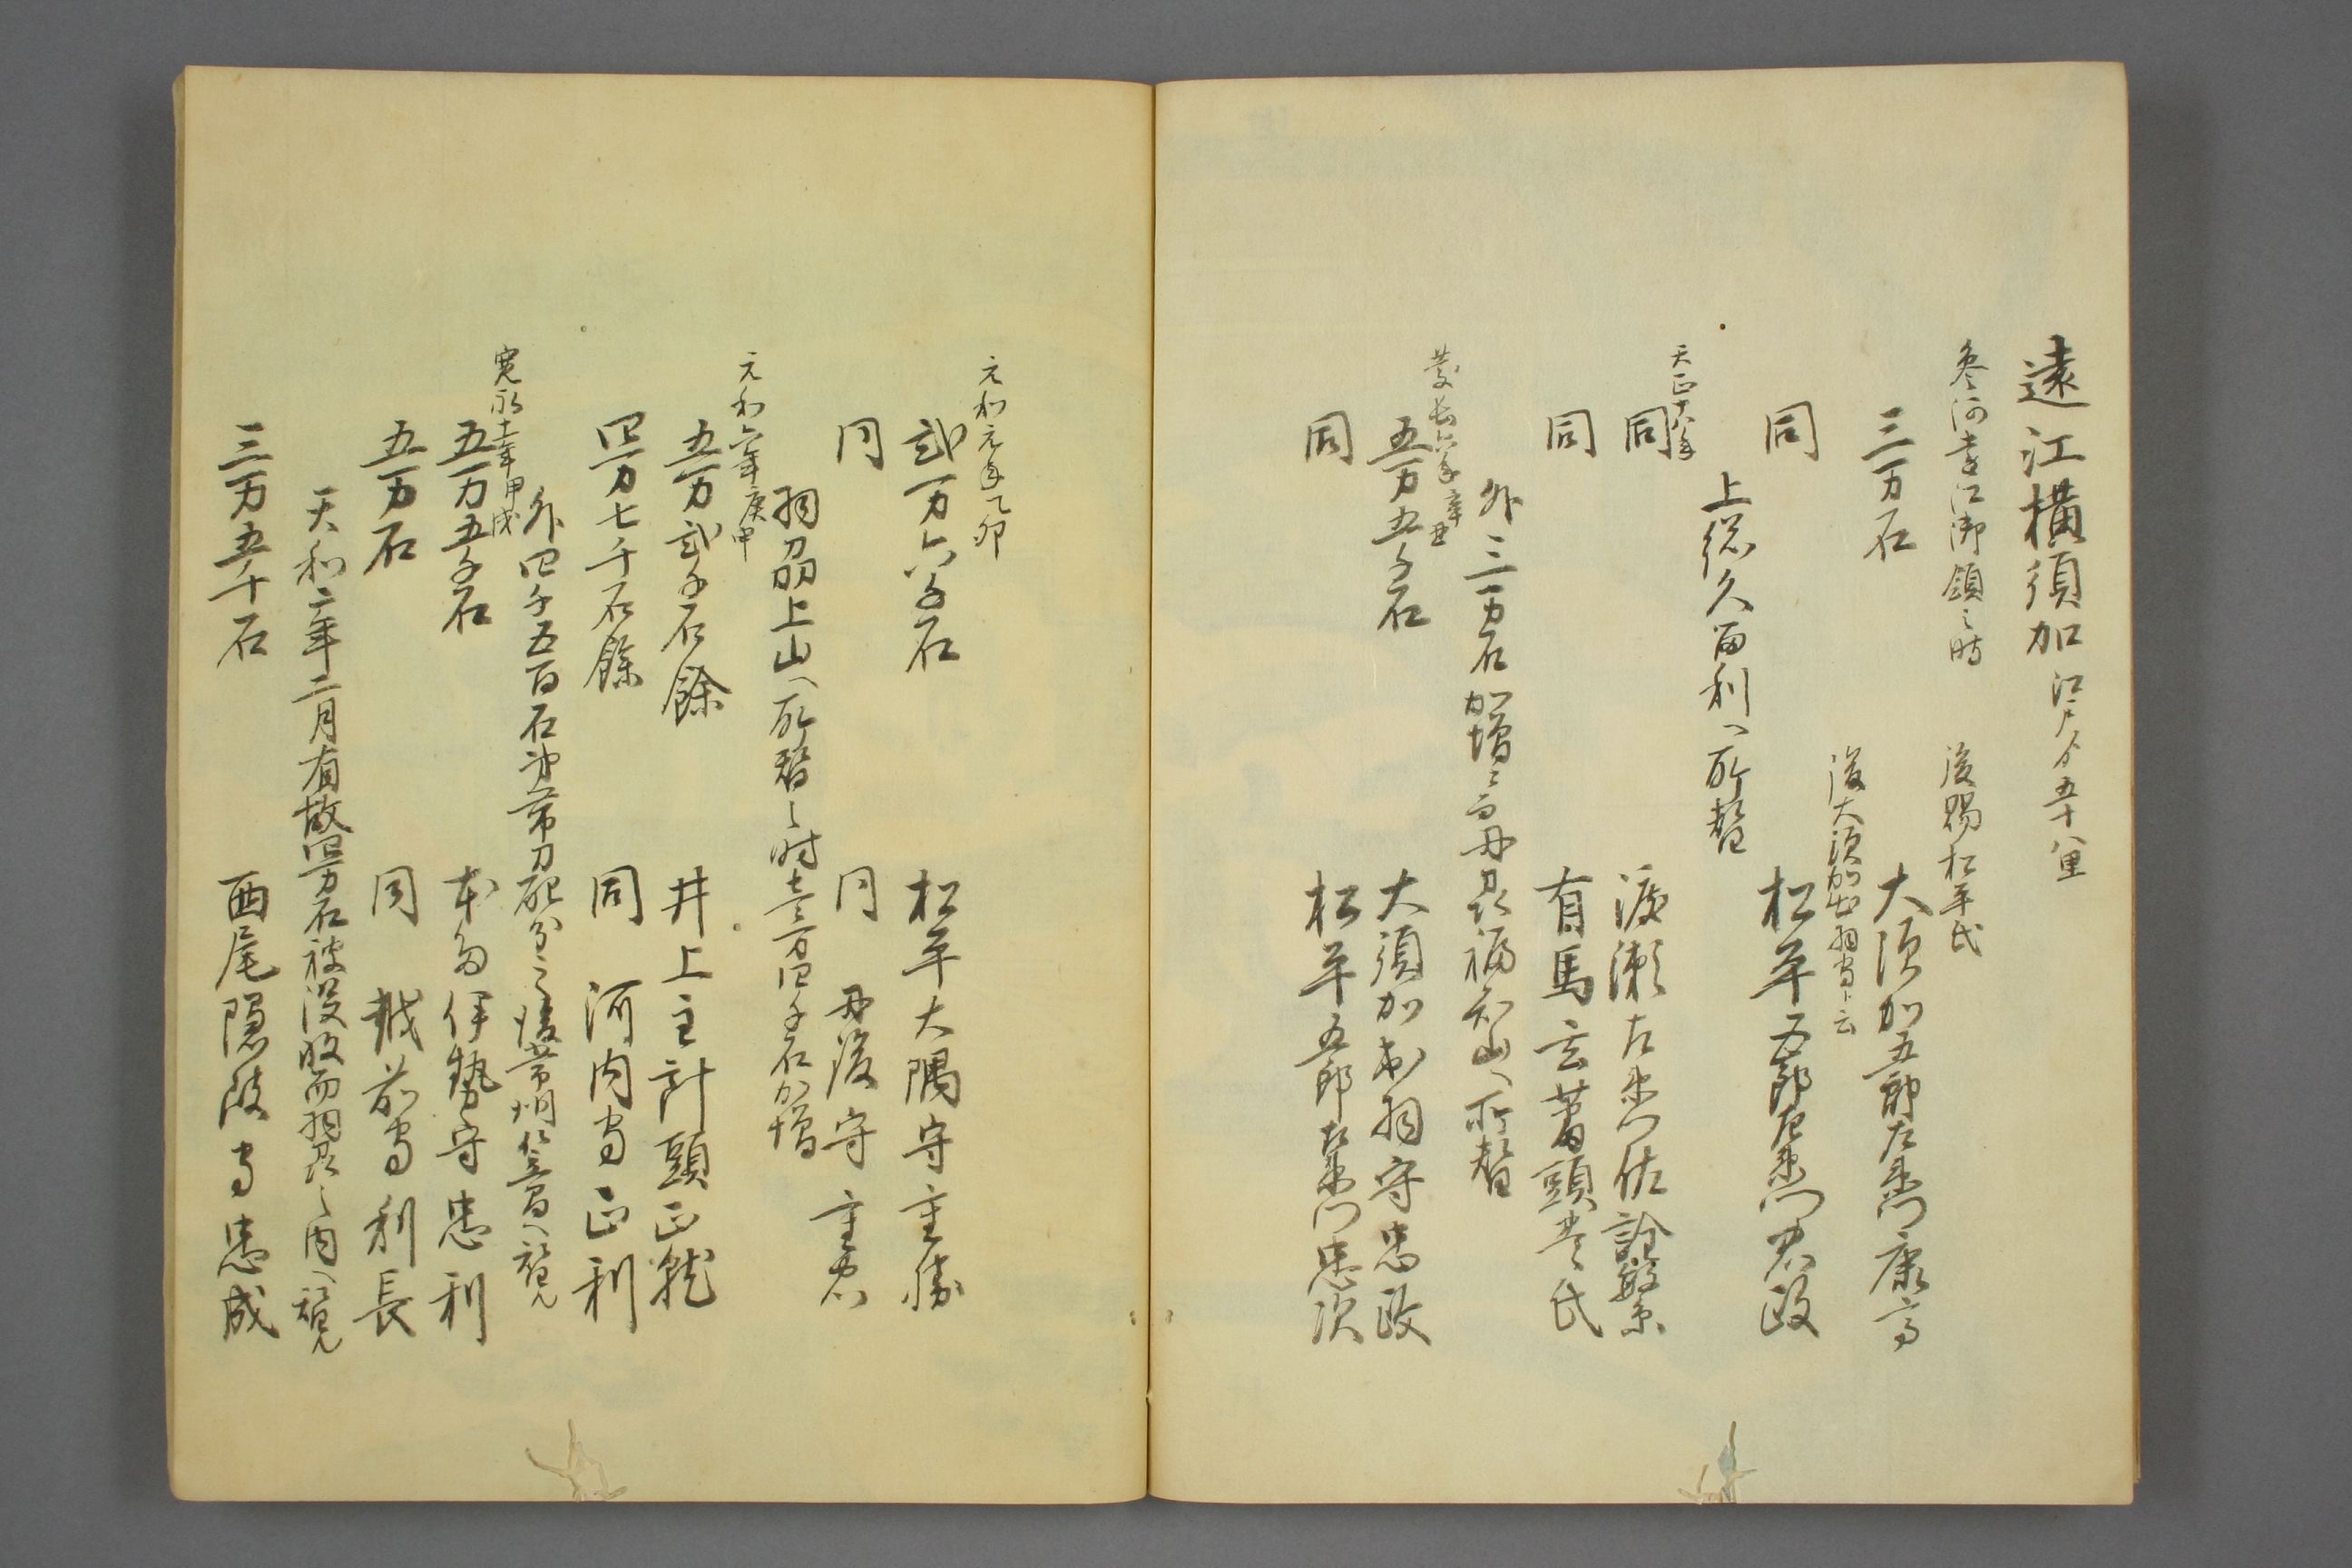 遠江横須加 江戸ゟ五十八里
参河遠江御領之時 後賜松平氏
三万石 大須加五郎左衛門康高
後大須加出羽守ト云
同 松平五郎左衛門忠政
上総久留利へ所替
天正十八年
同 渡瀬左衛門佐詮繁
同 有馬玄蕃頭豊氏
外三万石加増之而丹州福知山へ所替
慶長六年辛丑
五万五千石 大須加出羽守忠政
同 松平五郎左衛門忠次
元和元年乙卯
弐万六千石 松平大隅守重勝
同 同丹後守重忠
羽州上山へ所替之時壱万四千石加増
元和六年庚申
五万弐千石餘 井上主計頭正就
四万七千石餘 同河内守正利
外四千五百石弟帯刀配分之後常州笠間へ替
寛永十一年甲戌
五万五千石 本多伊勢守忠利
五万石 同越前守利長
天和二年二月有故四万石被没収而羽州之内へ替
三万五千石 西尾隠岐守忠成